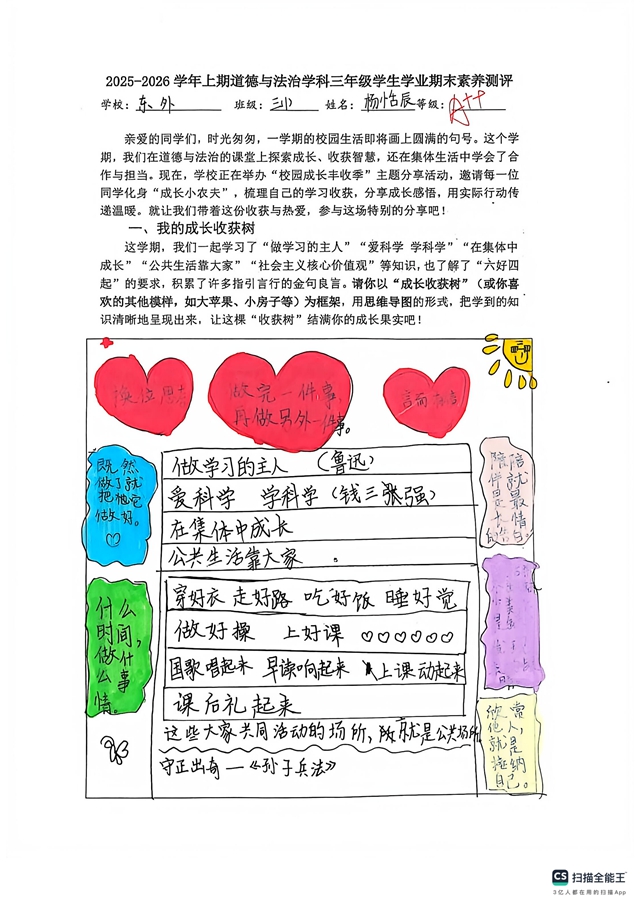 2025-2026 学年上期道德与法治学科三年级学生学业期末素养测评
学校：东外 班级：三(1) 姓名：杨恬辰 等级：A++
亲爱的同学们，时光匆匆，一学期的校园生活即将画上圆满的句号。这个学
期，我们在道德与法治的课堂上探索成长、收获智慧，还在集体生活中学会了合
作与担当。现在，学校正在举办“校园成长丰收季”主题分享活动，邀请每一位
同学化身“成长小农夫”，梳理自己的学习收获，分享成长感悟，用实际行动传
递温暖。就让我们带着这份收获与热爱，参与这场特别的分享吧！
一、我的成长收获树
这学期，我们一起学习了“做学习的主人”“爱科学 学科学”“在集体中
成长”“公共生活靠大家”“社会主义核心价值观”等知识，也了解了“六好四
起”的要求，积累了许多指引言行的金句良言。请你以“成长收获树”（或你喜
欢的其他模样，如大苹果、小房子等）为框架，用思维导图的形式，把学到的知
识清晰地呈现出来，让这棵“收获树”结满你的成长果实吧！
换位思考
做完一件事，
再做另外一件事。
言而有信
既然
做了就
把他它
做好。
什么
时间，
做什
么事
情。
做学习的主人 （鲁迅）
爱科学 学科学（钱三强）
在集体中成长
公共生活靠大家。
穿好衣 走好路 吃好饭 睡好觉
做好操 上好课
国歌唱起来 早读响起来 上课动起来
课后礼起来
这些大家共同活动的场所，就是公共场所
守正出奇—《孙子兵法》
陪伴是长
陪就最情
扫描全能王
3亿人都在用的扫描App